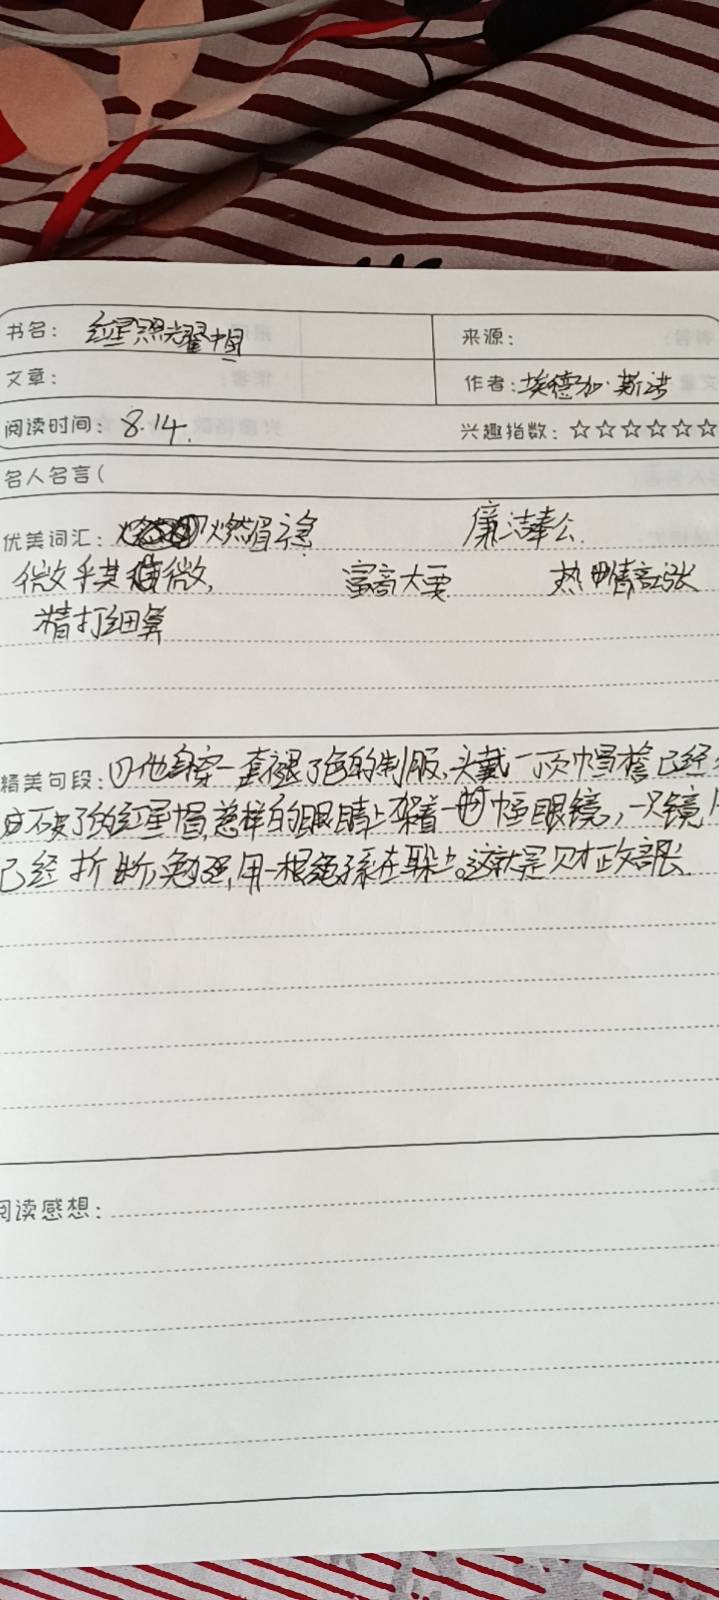 书名： 红星照耀中国 来源：
文章： 作者：埃德加·斯诺
阅读时间： 8.14. 兴趣指数：☆☆☆☆☆☆
名人名言(
优美词汇： 燃眉之急 廉洁奉公.
微乎其微, 富商大贾 热情高涨
精打细算
精美句段：①他身穿一套褪了色的制服,头戴一顶帽檐已经
了的红星帽,慈祥的眼睛上架着一幅眼镜,一只镜
已经折断,勉强用一根绳子系在耳朵上。这就是财政部长.
阅读感想：